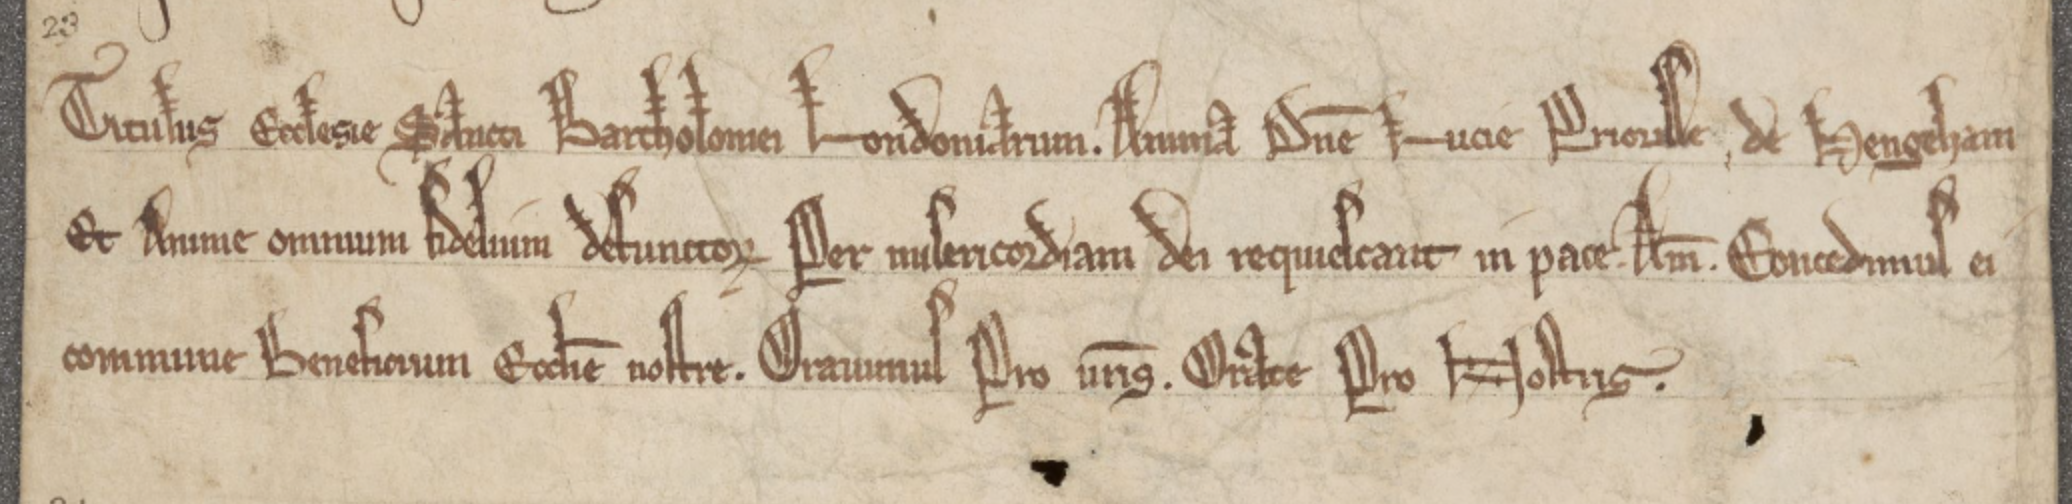 23
Titulus Ecclesie Sancti Bartholomei Londoniarum. Anima Dn̄e Lucie Priorisse, de Hengeham
Et Anime omnium fidelium defunctoꝝ Per misericordiam dei requiescant in pace. Am̄. Concedimus ei
commune Beneficium Ecclie̅ nostre. Oravimus Pro ur̄is. Orate Pro Nostris.